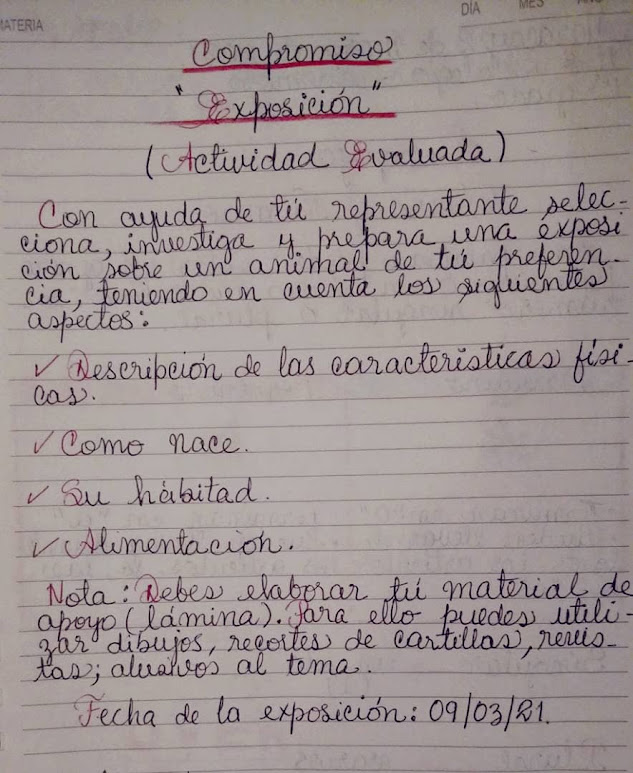 MATERIA
DÍA
MES
Compromiso
"Exposición"
(Actividad Evaluada)
Con ayuda de tú representante selec-
ciona, investiga y prepara una exposi
ción sobre un animal de tú preferen-
cia, teniendo en cuenta los siguientes
aspectos:
✓ Descripción de las caracteristicas físi-
cas.
✓ Como nace.
✓ Su hábitad.
✓ Alimentación.
Nota: Debes elaborar tú material de
apoyo (lámina). Para ello puedes utili-
zar dibujos, recortes de cartillas, revis-
tas; alusivos al tema.
Fecha de la exposición: 09/03/21.